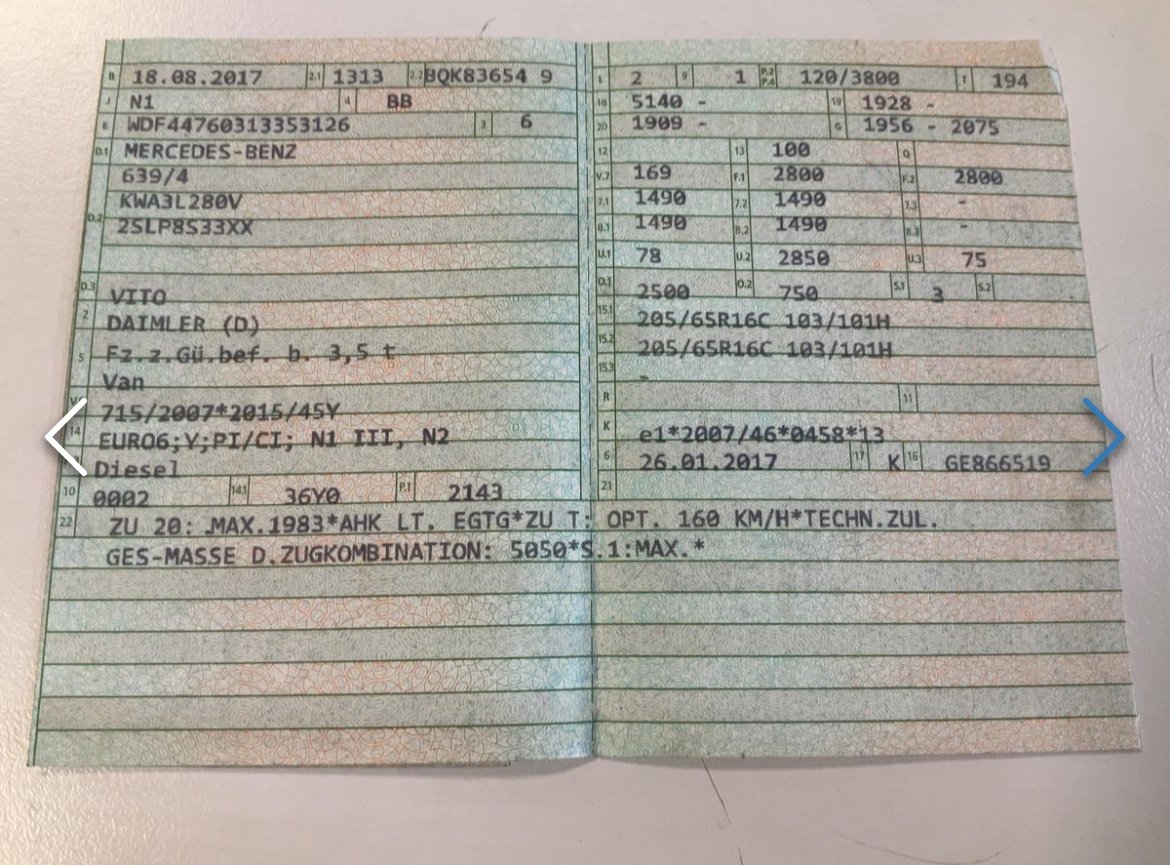 B 18.08.2017 2.1 1313 2.2 BQK83654 9
J N1 4 BB
E WDF44760313353126 3 6
D.1 MERCEDES-BENZ
639/4
D.2 KWA3L280V
2SLP8S33XX
D.3 VITO
2 DAIMLER (D)
5 Fz.z.Gü.bef. b. 3,5 t
Van
V 715/2007*2015/45Y
14 EURO6;Y;PI/CI; N1 III, N2
Diesel
10 0002 14.1 36Y0 P.1 2143
L 2 9 1 P.2 P.4 120/3800 T 194
18 5140 - 19 1928 -
20 1909 - G 1956 - 2075
12 13 100 Q
V.7 169 F.1 2800 F.2 2800
7.1 1490 7.2 1490 7.3 -
8.1 1490 8.2 1490 8.3 -
U.1 78 U.2 2850 U.3 75
O.1 2500 O.2 750 S.1 3 S.2
15.1 205/65R16C 103/101H
15.2 205/65R16C 103/101H
15.3 -
R 11
K e1*2007/46*0458*13
6 26.01.2017 17 K 16 GE866519
21
22 ZU 20: MAX.1983*AHK LT. EGTG*ZU T: OPT. 160 KM/H*TECHN.ZUL.
GES-MASSE D.ZUGKOMBINATION: 5050*S.1:MAX.*